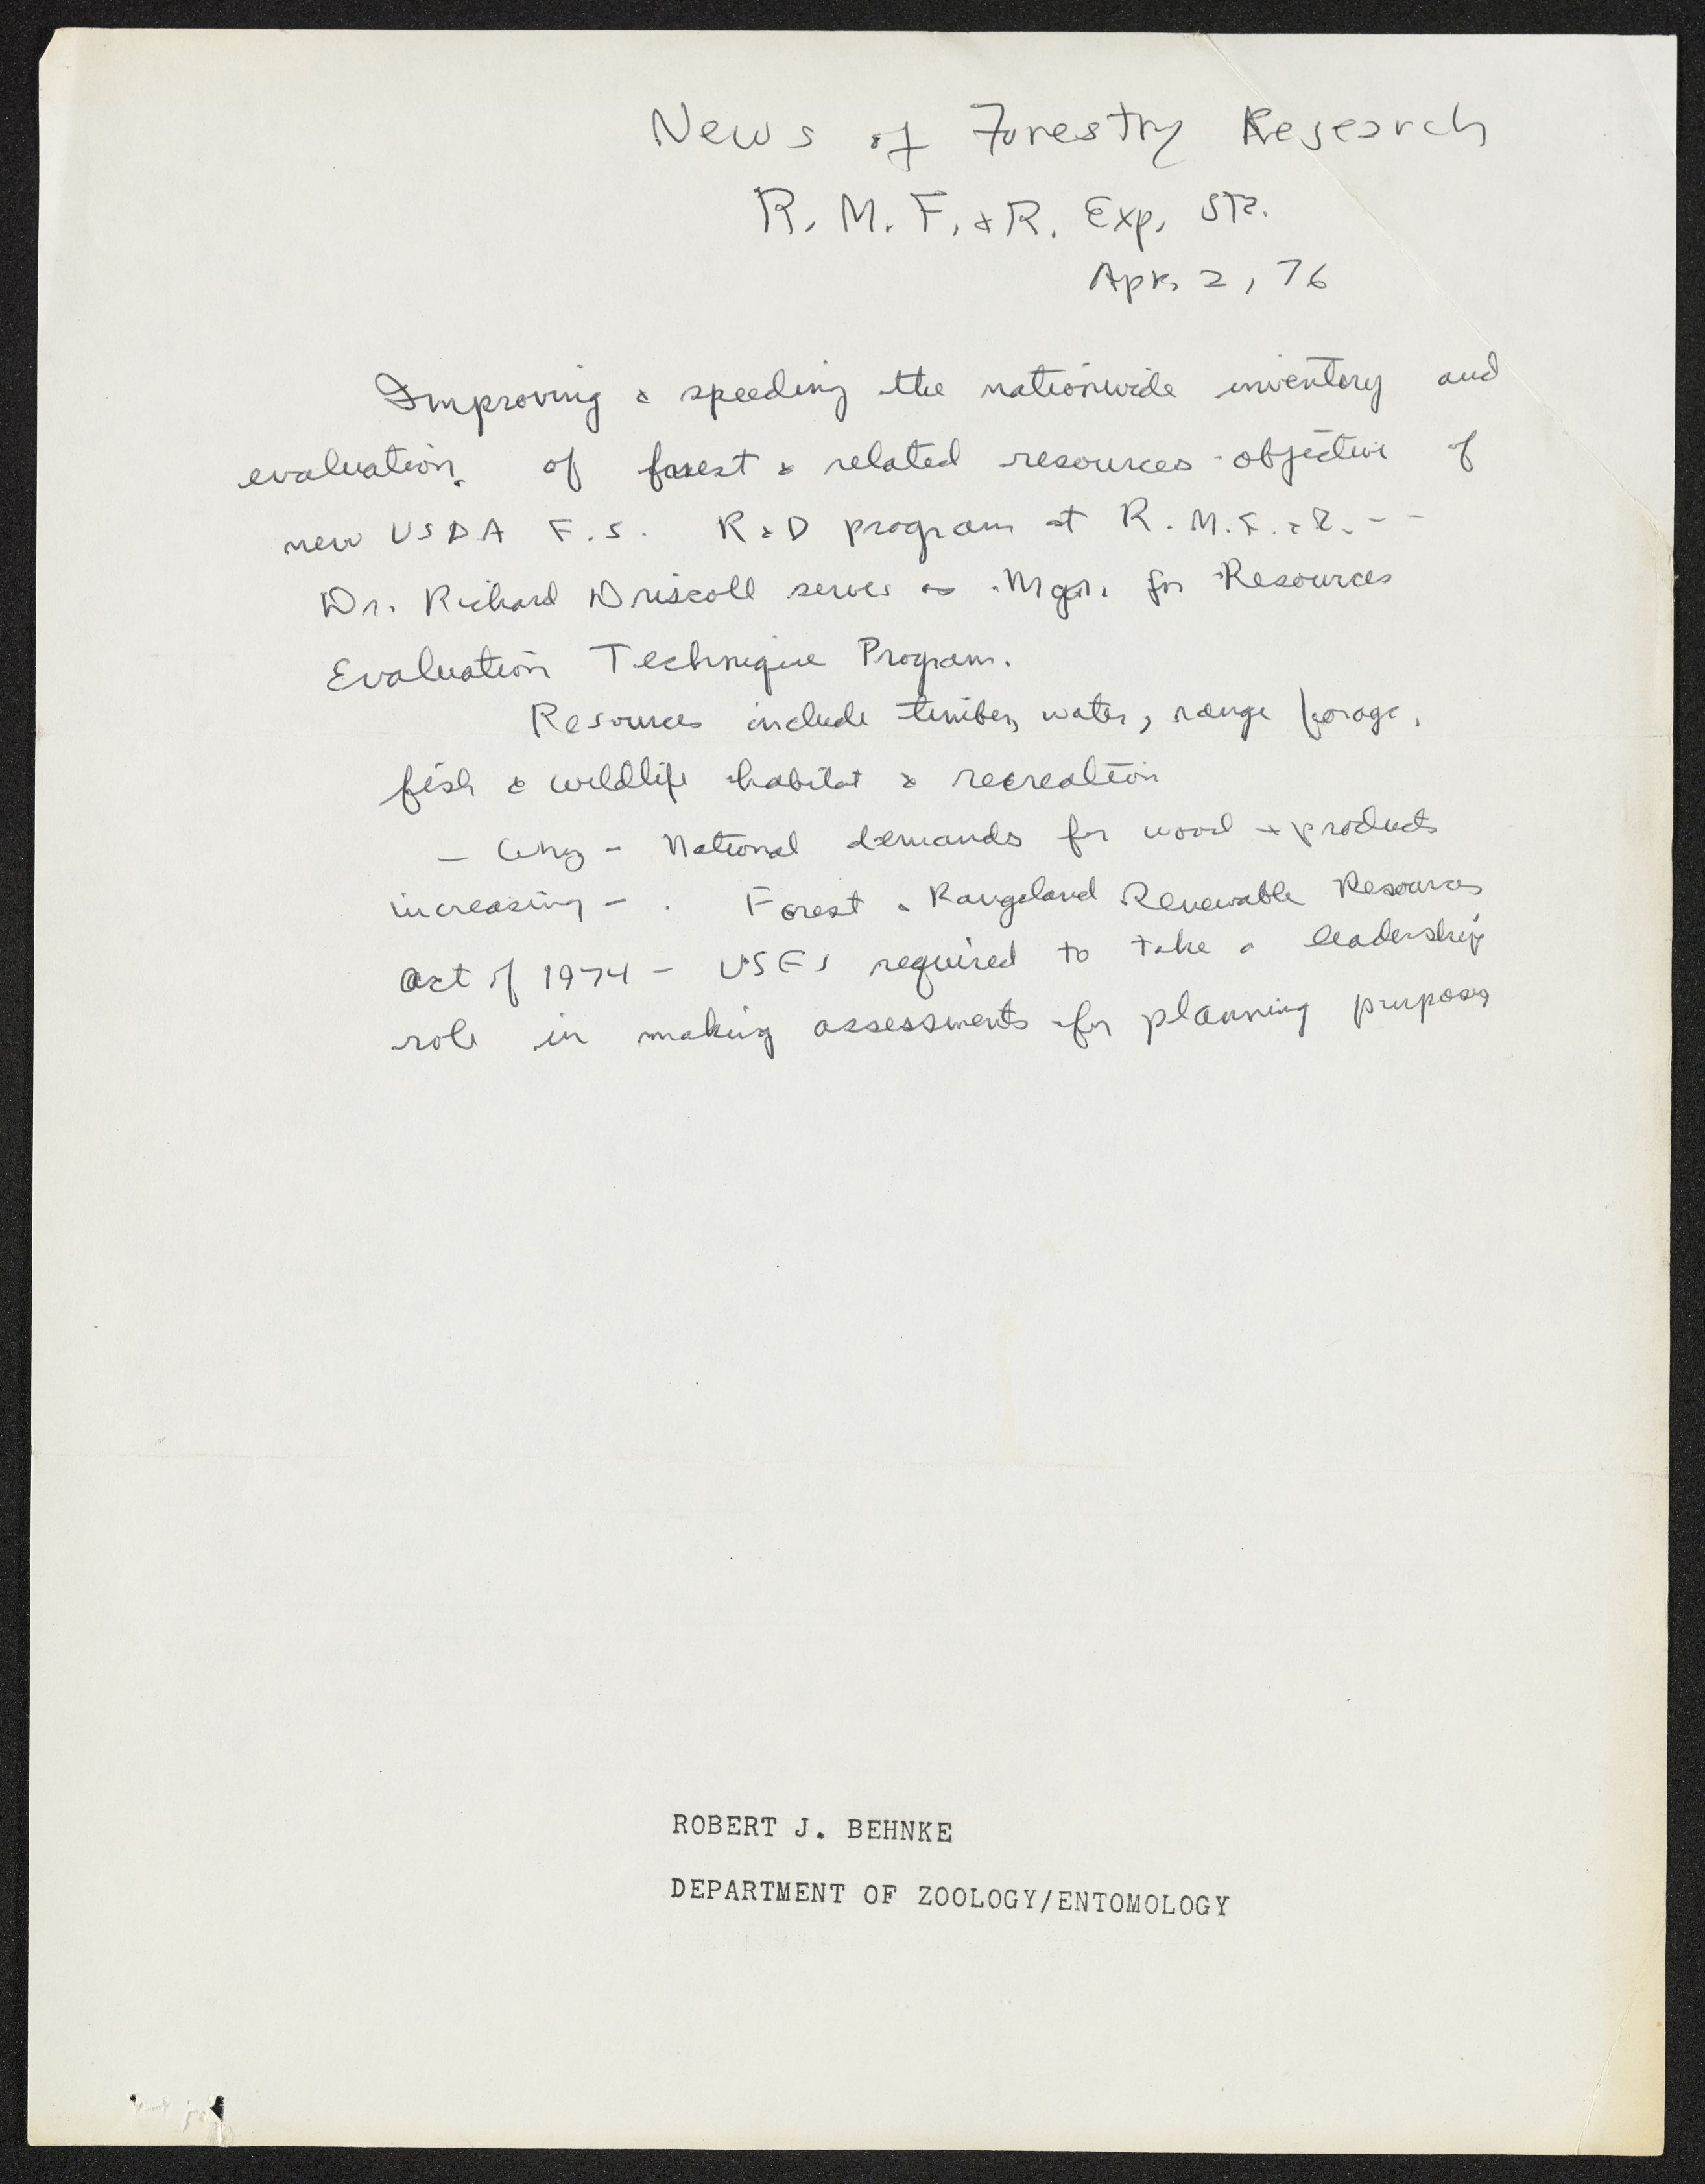 News of Forestry Research
R. M. F. & R. Exp. Sta.
Apr. 2, 76
Improving & speeding the nationwide inventory and
evaluation of forest & related resources - objective of
new USDA F.S. R&D program at R. M. F. & R. - -
Dr. Richard Driscoll serves as Mgr. for Resources
Evaluation Technique Program.
Resources include timber, water, range forage,
fish & wildlife habitat & recreation
- Why - National demands for wood & products
increasing - . Forest & Rangeland Renewable Resources
Act of 1974 - USFS required to take a leadership
role in making assessments for planning purposes
ROBERT J. BEHNKE
DEPARTMENT OF ZOOLOGY/ENTOMOLOGY